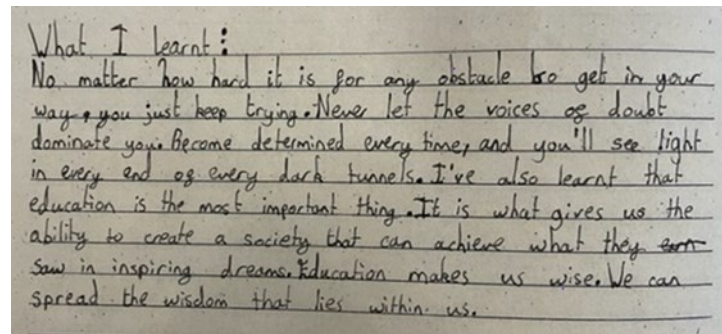 What I learnt:
No matter how hard it is for any obstacle to get in your
way, you just keep trying. Never let the voices of doubt
dominate you. Become determined every time, and you'll see light
in every end of every dark tunnels. I've also learnt that
education is the most important thing. It is what gives us the
ability to create a society that can achieve what they
saw in inspiring dreams. Education makes us wise. We can
spread the wisdom that lies within us.